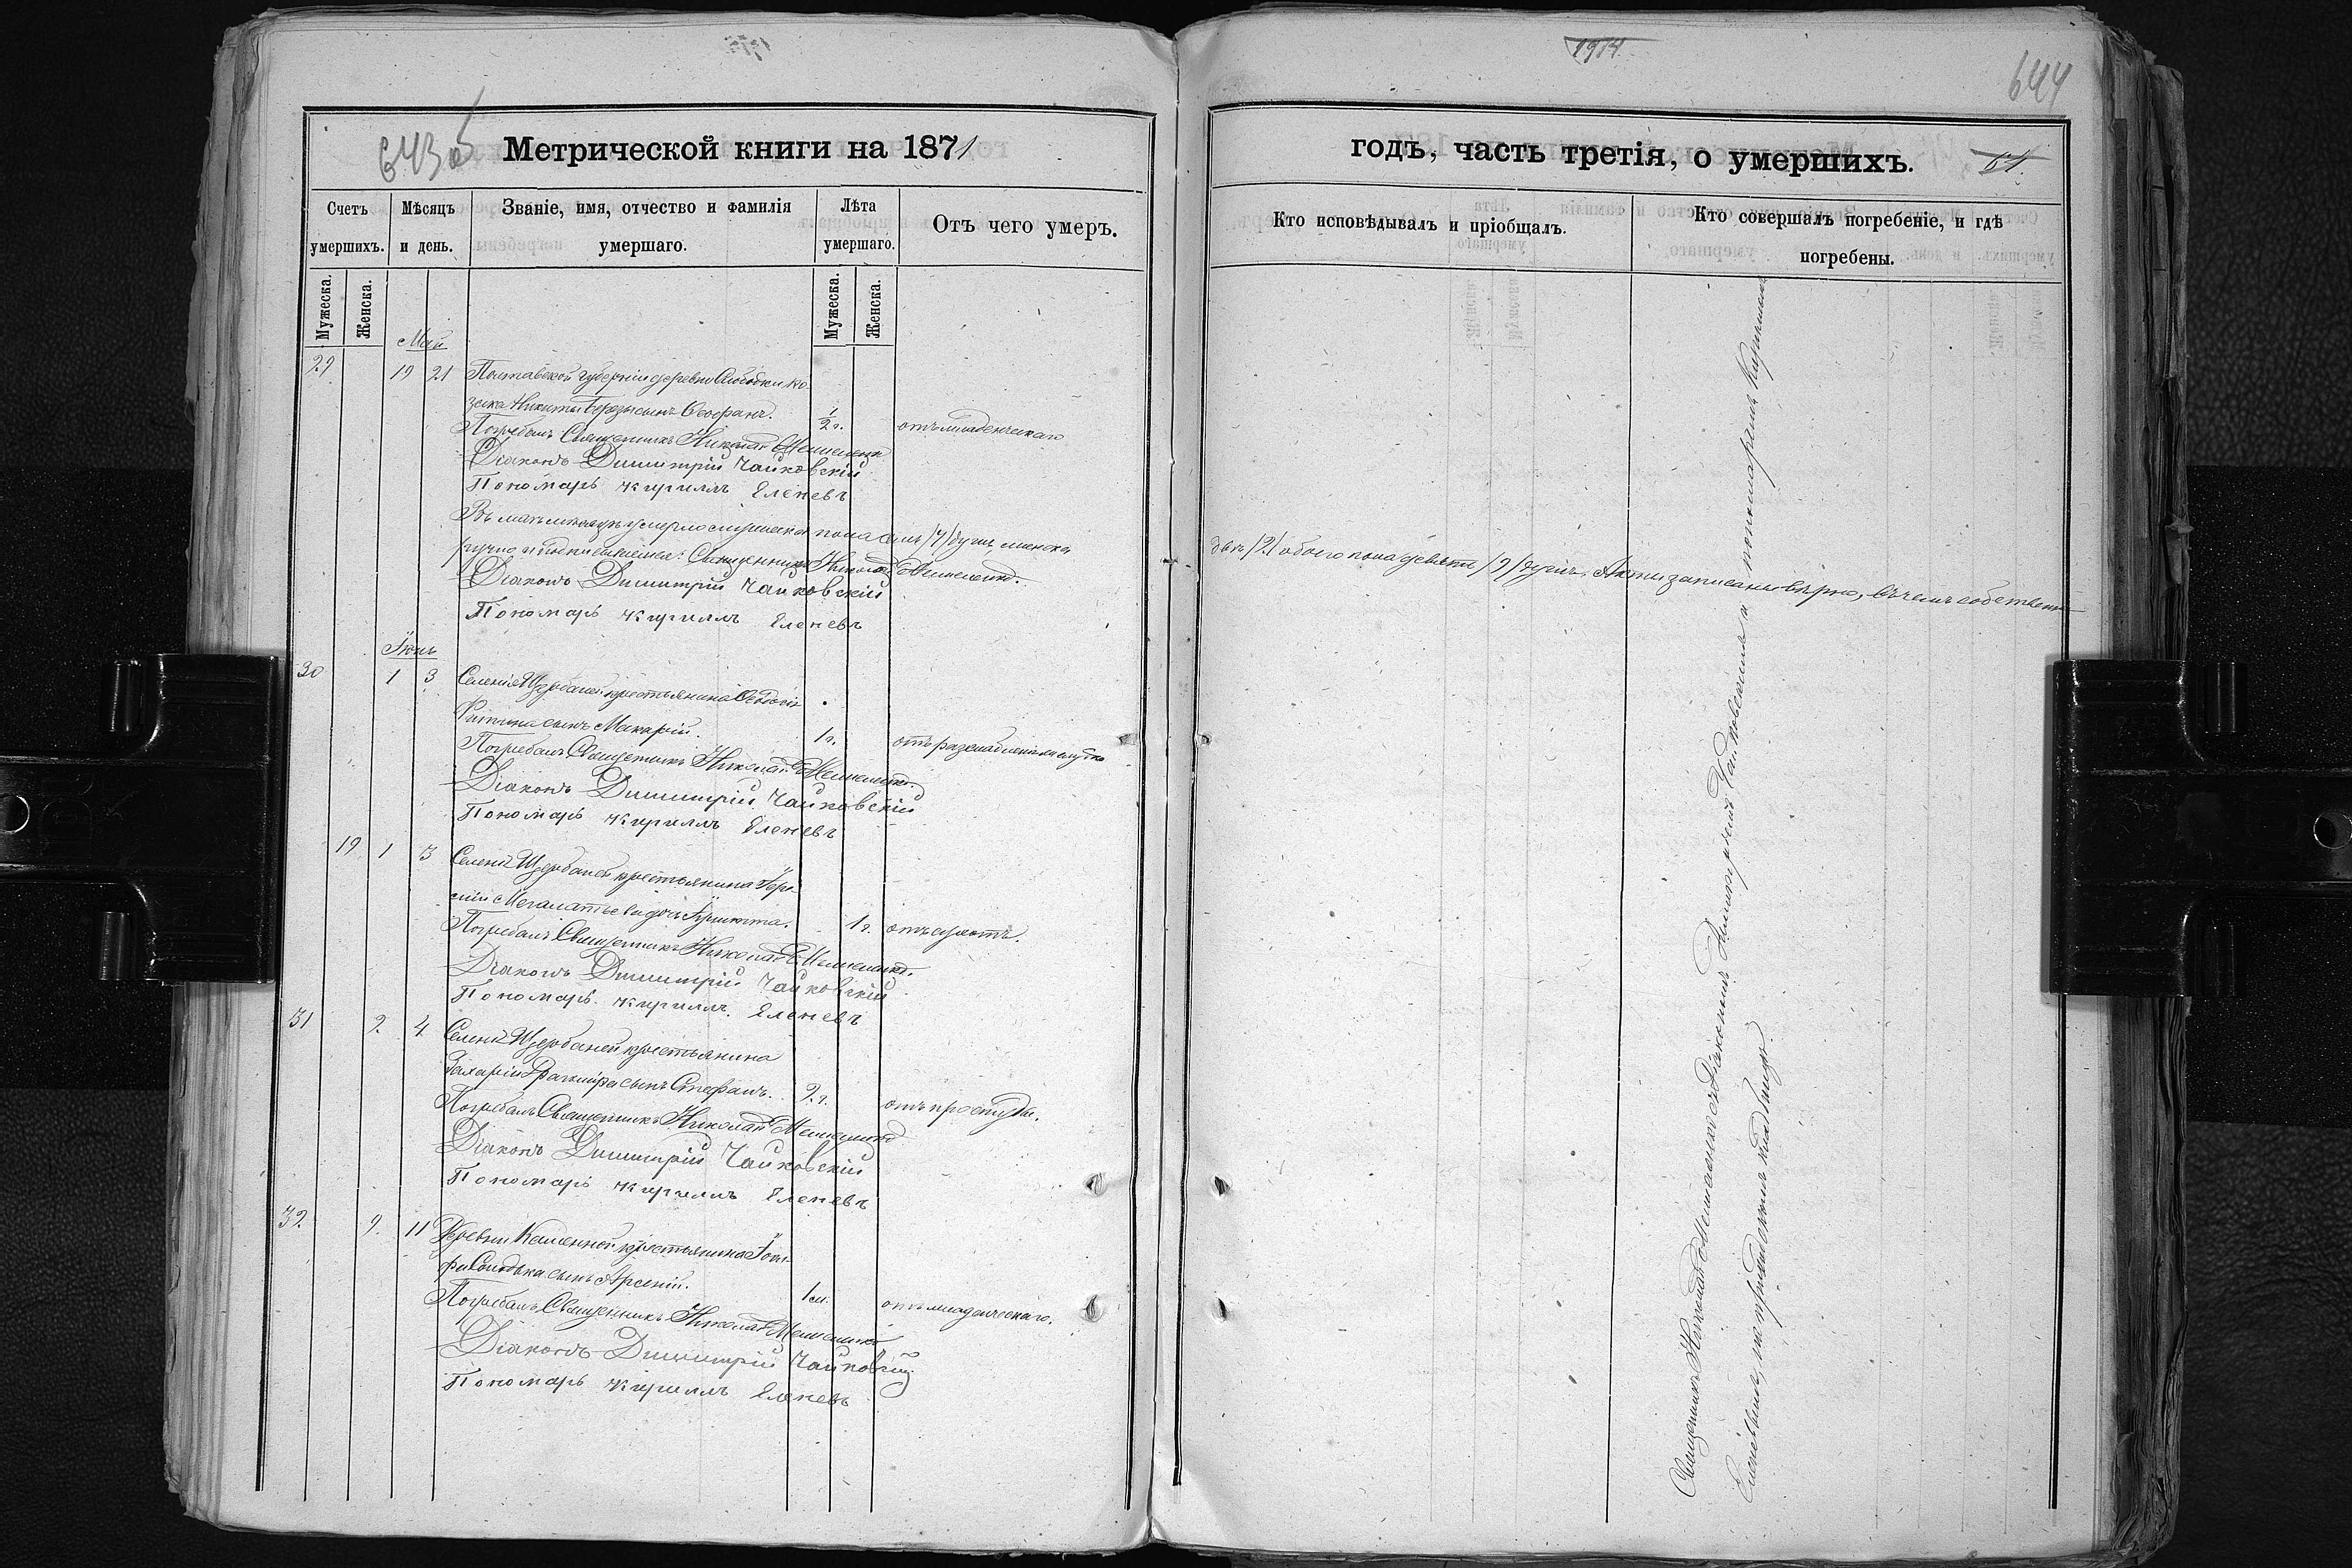 643 об
Метрической книги на 1871
Счетъ умершихъ.
Мѣсяцъ и день.
Званіе, имя, отчество и фамилія умершаго.
Лѣта умершаго.
Отъ чего умеръ.
Мужеска.
Женска.
Мужеска.
Женска.
Май
29 19 21 Полтавской губерніи деревни Слободки ко-
зака Никиты Березы сынъ Ѳеофанъ. 1/2 г. отъ младенческаго
Погребалъ Священникъ Николай
Діаконъ Димитрій Чайковскій
Пономарь Кирилъ Еленевъ
Въ маѣ мѣсяцѣ умерло мужеска пола семь /7/ душъ, женска
ручно и подписываемся: Священникъ Николай
Діаконъ Димитрій Чайковскій
Пономарь Кириллъ Еленевъ
Іюнь
30 1 3 Селенія Щербаней крестьянина
сынъ Макарій. 1 г. отъ разслабленія желудка
Погребалъ Священникъ Николай
Діаконъ Димитрій Чайковскій
Пономарь Кириллъ Еленевъ
19 1 3 Селенія Щербаней крестьянина
дочь 1 г. отъ сухотъ.
Погребалъ Священникъ Николай
Діаконъ Димитрій Чайковскій
Пономарь Кириллъ Еленевъ
31 2 4 Селенія Щербаней крестьянина
Захаріи сынъ Стефанъ. 2 г. отъ простуды.
Погребалъ Священникъ Николай
Діаконъ Димитрій Чайковскій
Пономарь Кириллъ Еленевъ
32 9 11 Деревни Каменной крестьянина
сынъ Арсеній. 1 м. отъ младенческаго.
Погребалъ Священникъ Николай
Діаконъ Димитрій Чайковскій
Пономарь Кириллъ Еленевъ
1914
644
годъ, часть третія, о умершихъ.
64
Кто исповѣдывалъ и пріобщалъ.
Кто совершалъ погребеніе, и гдѣ погребены.
двѣ /2/ обоего пола девять /9/ душъ. Акты записаны вѣрно, въ чемъ собственно-
Священникъ Николай съ Діакономъ Димитріемъ Чайковскимъ и пономаремъ Кирилломъ
Еленевымъ, на приходскомъ кладбищѣ.